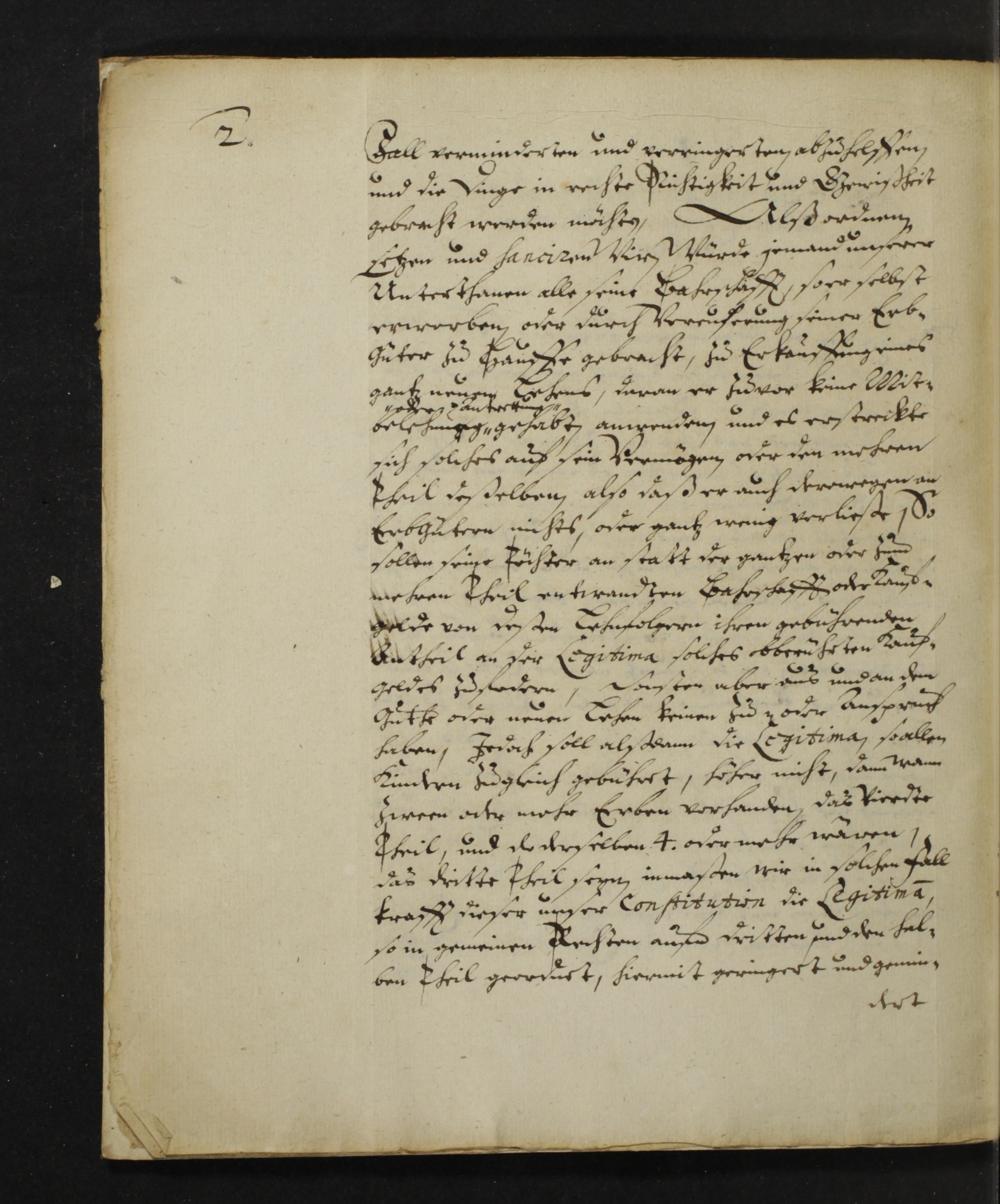 2.
Fall verminderten und verringerten abzuhelffen,
und die Dinge in rechte Richtigkeit und Gewißheit
gebracht werden möchte, Alß ordnen,
setzen und sanciren Wir, Würde jemand unserer
Unterthanen alle seine Bahrschafft, so er selbst
erworben, oder durch Vereuserung seiner Erb-
Güter zu Hauffe gebracht, zu Erkauffung eines
gantz neuen Lehens, daran er zuvor keine Mit-
belehnung gehabt, anwenden, und es erstreckte
sich solches auf sein Vermögen, oder den mehren
Theil desselben, also daß er auch derowegen an
Erbgütern nichts, oder gantz wenig verliesse, So
sollen seine Töchter an statt der gantzen oder zum
mehren Theil entwandten Bahrschafft oder Kauf-
gelde von desten Lehnfolgern ihren gebührenden
Antheil an der Legitima solches obberührten Kauf-
geldes zu fodern, Sonsten aber aus und an dem
Guthe oder neuen Lehen keinen Zu- oder Anspruch
haben, Jedoch soll alßdann die Legitima, so allen
Kindern zugleich gebühret, höher nicht, dann wann
zween oder mehr Erben vorhanden, das Vierdte
Theil, und do derselben 4. oder mehr wären,
das dritte Theil seyn, inmassen wir in solchen Fall
krafft dieser unser Constitution die Legitimā,
so in gemeinen Rechten aufm dritten und den hal-
ben Theil geordnet, hiermit geringert und gemin-
dert